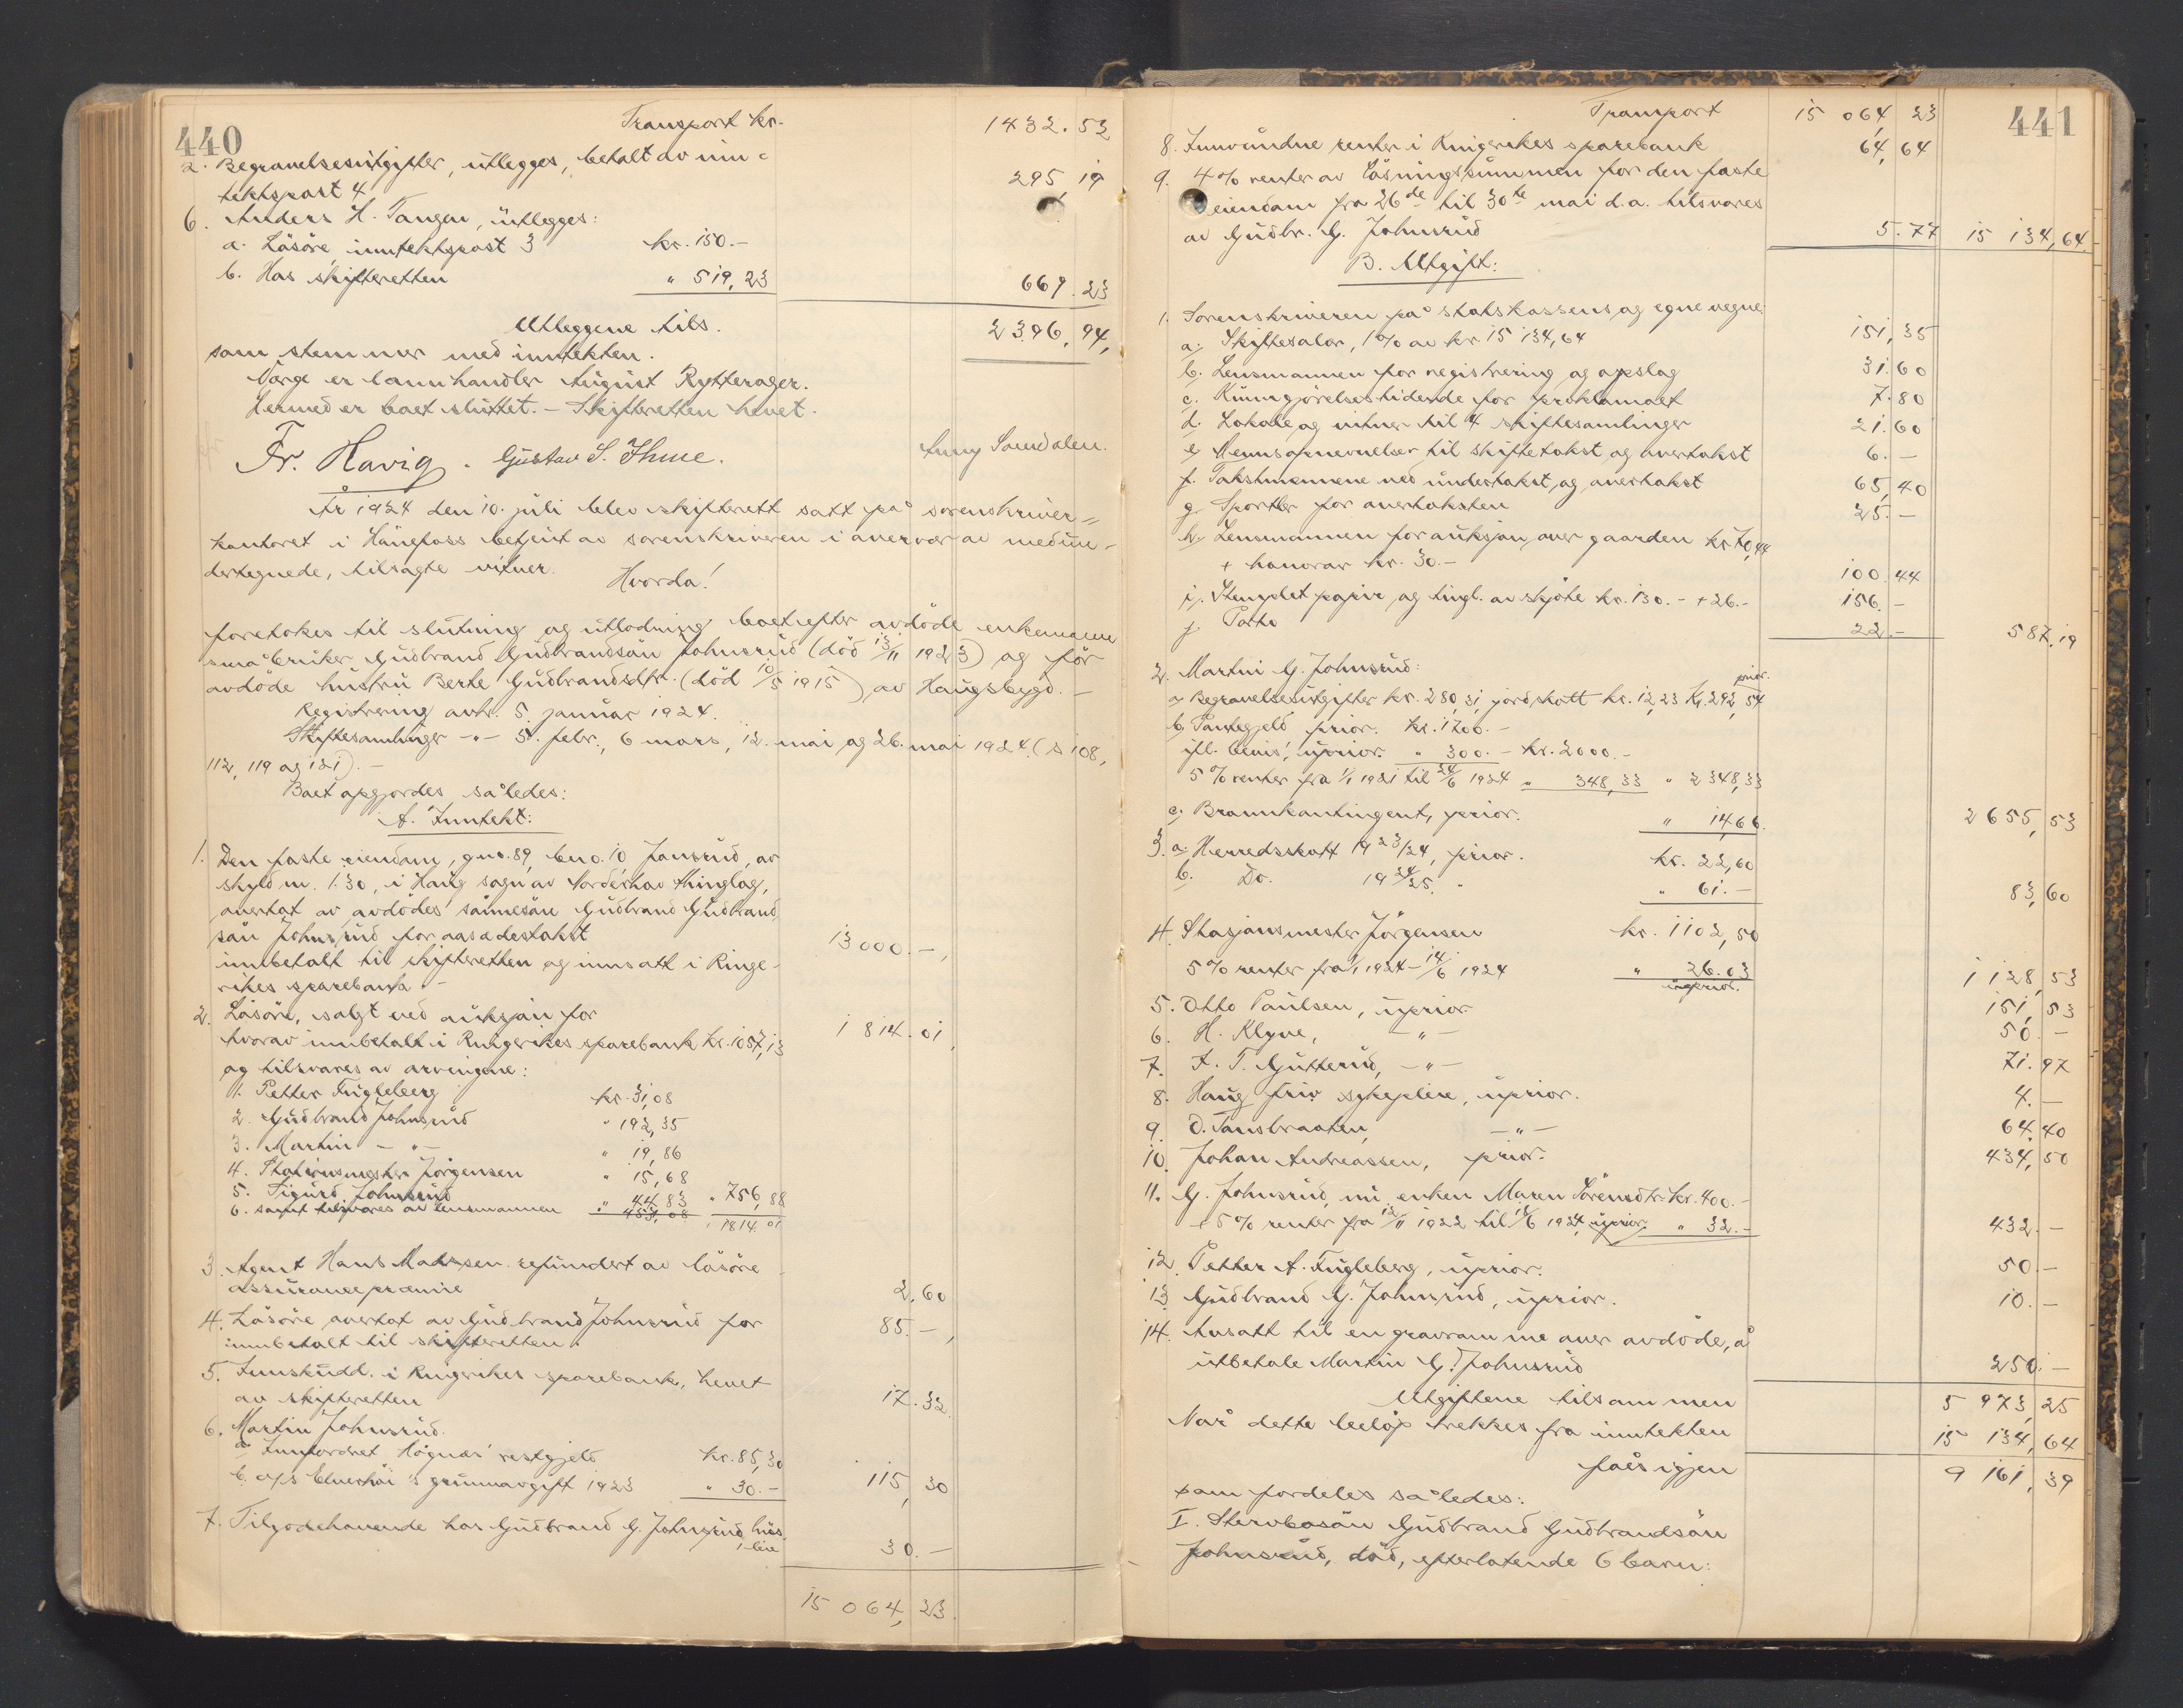 440
Transport kr.
1432.53
a. Begravelsesutgifter, utlegges, betalt av inn-
tektspost 4
295,19
6. Anders H. Tangen, utlegges:
a. Lösöre, inntektspost 3 kr. 150.-
b. Hos skifteretten " 519,23
669.23
Utleggene tils.
2396,94,
som stemmer med inntekten.
Værge er lannhandler August Rytterager.
Hermed er boet sluttet. - Skifteretten hevet.
Fr. Havig. Gustav S. Thue. Anny Sorndalen.
År 1924 den 10. juli blev skifterett satt på sorenskriver-
kontoret i Hönefoss betjent av sorenskriveren i overvær av medun-
dertegnede, tilsagte vitner.
Hvorda!
foretokes til slutning og utlodning boet efter avdöde enkemann
småbruker Gudbrand Gudbrandsön Johnsrud (död 13/11 1923) og för
avdöde hustru Berte Gudbrandsdtr. (död 10/5 1915) av Haugsbygd. -
Registrering avh. 5. januar 1924.
Skiftesamlinger -"- 5. febr., 6 mars, 12. mai og 26. mai 1924 (s 108,
112, 119 og 121). -
Boet opgjordes således:
A. Inntekt:
1. Den faste eiendom, gno. 89, bno. 10 Jonsrud, av
skyld m. 1.30, i Haug sogn av Norderhov thinglag,
overtat av avdödes sönnesön Gudbrand Gudbrand
sön Johnsrud for aasædestakst
13000.-,
innbetalt til skifteretten og innsatt i Ringe-
rikes sparebank. -
2. Lösöre, solgt ved auksjon for
1814.01,
hvorav innbetalt i Ringerikes sparebank kr. 1057,13
og tilsvares av arvingene:
1. Petter Fugleberg kr. 31,08
2. Gudbrand Johnsrud " 192,35
3. Martin -"- " 19,86
4. Stasjonsmester Jörgensen " 15,68
5. Sigurd Johnsrud " 44,83 " 756,88
6. samt tilsvares av lensmannen " 453,08 " 1814.01
3. Agent Hans Madssen refundert av lösöre
assurancepræmie
2,60
4. Lösöre overtat av Gudbrand Johnsrud for
85.-,
innbetalt til skifteretten.
5. Innskudd i Ringerikes sparebank, hevet
av skifteretten
17.32
6. Martin Johnsrud.
a. Innfordret Högnæs' restgjeld kr. 85,30
b. a/s grunnavgift 1923 " 30.-
115,30
7. Tilgodehavende hos Gudbrand G. Johnsrud, hus-
leie
30.-
15064,23.
441
Transport 15064,23
8. Innvundne renter i Ringerikes sparebank 64,64
9. 4% renter av lösningssummen for den faste
eiendom fra 26de til 30te mai d.a. tilsvares
av Gudbr. G. Johnsrud 5.77 15134,64
B. Utgift:
1. Sorenskriveren på statskassens og egne vegne:
a. Skiftesalær, 1% av kr 15134,64 151,35
b. Lensmannen for registrering og opslag 31.60
c. Kunngjörelsestidende for proklamaet 7.80
d. Lokale og vitner til 4 skiftesamlinger 21.60
e. Mennsopnevnelser til skiftetakst og overtakst 6.-
f. Takstmennene ved undertakst, og overtakst 65,40
g. Sportler for overtaksten 25.-
h. Lensmannen for auksjon over gaarden kr 70,44
+ honorar kr. 30.- 100.44
i. Stemplet papir og tingl. av skjöte kr. 130.- + 26.- 156.-
j. Porto 22.- 587.19
2. Martin G. Johnsrud:
prior.
a. Begravelsesutgifter kr. 280,31, jordskatt kr. 12,23 kr. 292,54
b. Pantegjeld prior. kr. 1700.-
ifl. bevis, uprior. " 300.- kr. 2000.-
5% renter fra 1/1 1921 til 24/6 1924 " 348,33 " 2348,33
c. Brannkontingent, prior. " 14,66.
2655,53
3. a. Herredsskatt 1923/24, prior. kr. 22,60
b. Do. 1924/25. " " 61.-
83,60
4. Stasjonsmester Jörgensen kr. 1102,50
5% renter fra 1/1 1924 - 14/6 1924 " 26.03
uprior.
1128,53
5. Otto Paulsen, uprior. 151,53
6. H. Klyne, " 50.-
7. A. T. Gutterud, -"- 71.97
8. Haug friv. sykepleie, uprior. 4.-
9. O. Tansbraaten, -"- 64,40
10. Johan Andreassen, prior. 434,50
11. G. Johnsrud, nu enken Maren Sörensdtr. kr. 400.-
+ 5% renter fra 12/11 1922 til 18/6 1924, uprior. " 32.-
432.-
12. Petter A. Fugleberg, uprior. 50.-
13. Gudbrand G. Johnsrud, uprior. 10.-
14. Avsatt til en gravramme over avdöde, å
utbetale Martin G. Johnsrud 250.-
Utgiftene tilsammen 5973,25
Når dette belöp trekkes fra inntekten 15134,64
fåes igjen 9161,39
som fordeles således:
I. Stervbosön Gudbrand Gudbrandsön
Johnsrud, död, efterlatende 6 barn: